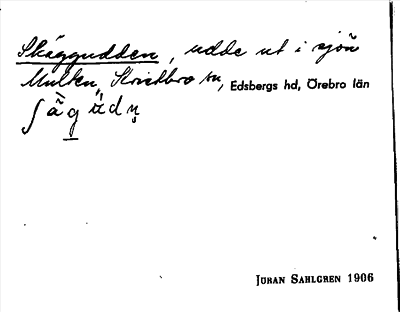 Skäggudden, udde ut i sjön
Multen, Skrivebro sn, Edsbergs hd, Örebro län
JÖRAN SAHLGREN 1906